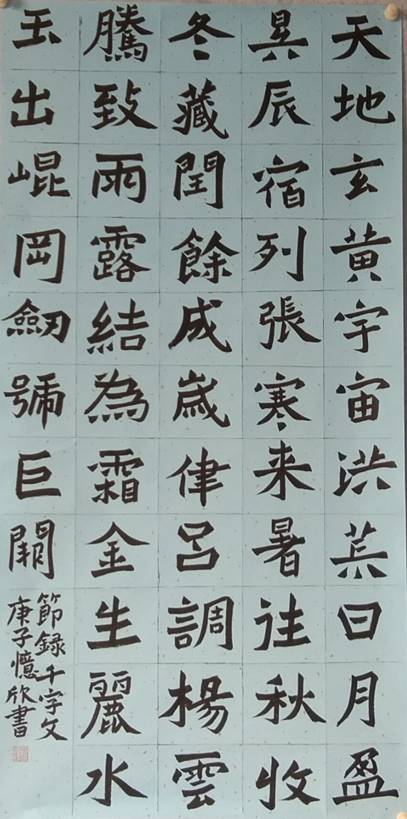 天地玄黄宇宙洪荒日月盈
昃辰宿列張寒来暑往秋收
冬藏閏餘成嵗律呂調楊雲
騰致雨露結為霜金生麗水
玉出崐岡劒號巨闕
節録千字文
庚子憶欣書